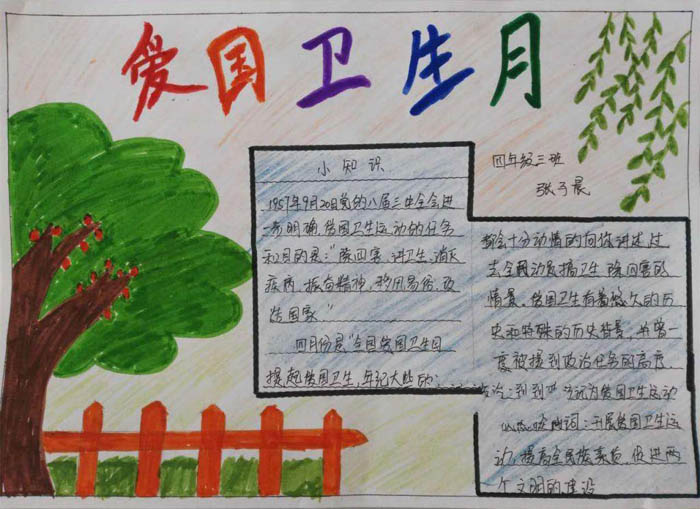 爱国卫生月
小知识
四年级三班
张子晨
1957年9月20日党的八届三中全会进
一步明确爱国卫生运动的任务
和目的是:"除四害,讲卫生,消灭
疾病,振奋精神,移风易俗,改
造国家。"
四月份是"全国爱国卫生月
提起爱国卫生,年纪大些的
都会十分动情的向你讲述过
去全民动员搞卫生除四害的
情景。爱国卫生有着悠久的历
史和特殊的历史背景,并曾一
度被提到政治任务的高度
为爱国卫生运动
词:开展爱国卫生运
动,提高全民族素质,促进两
个文明的建设